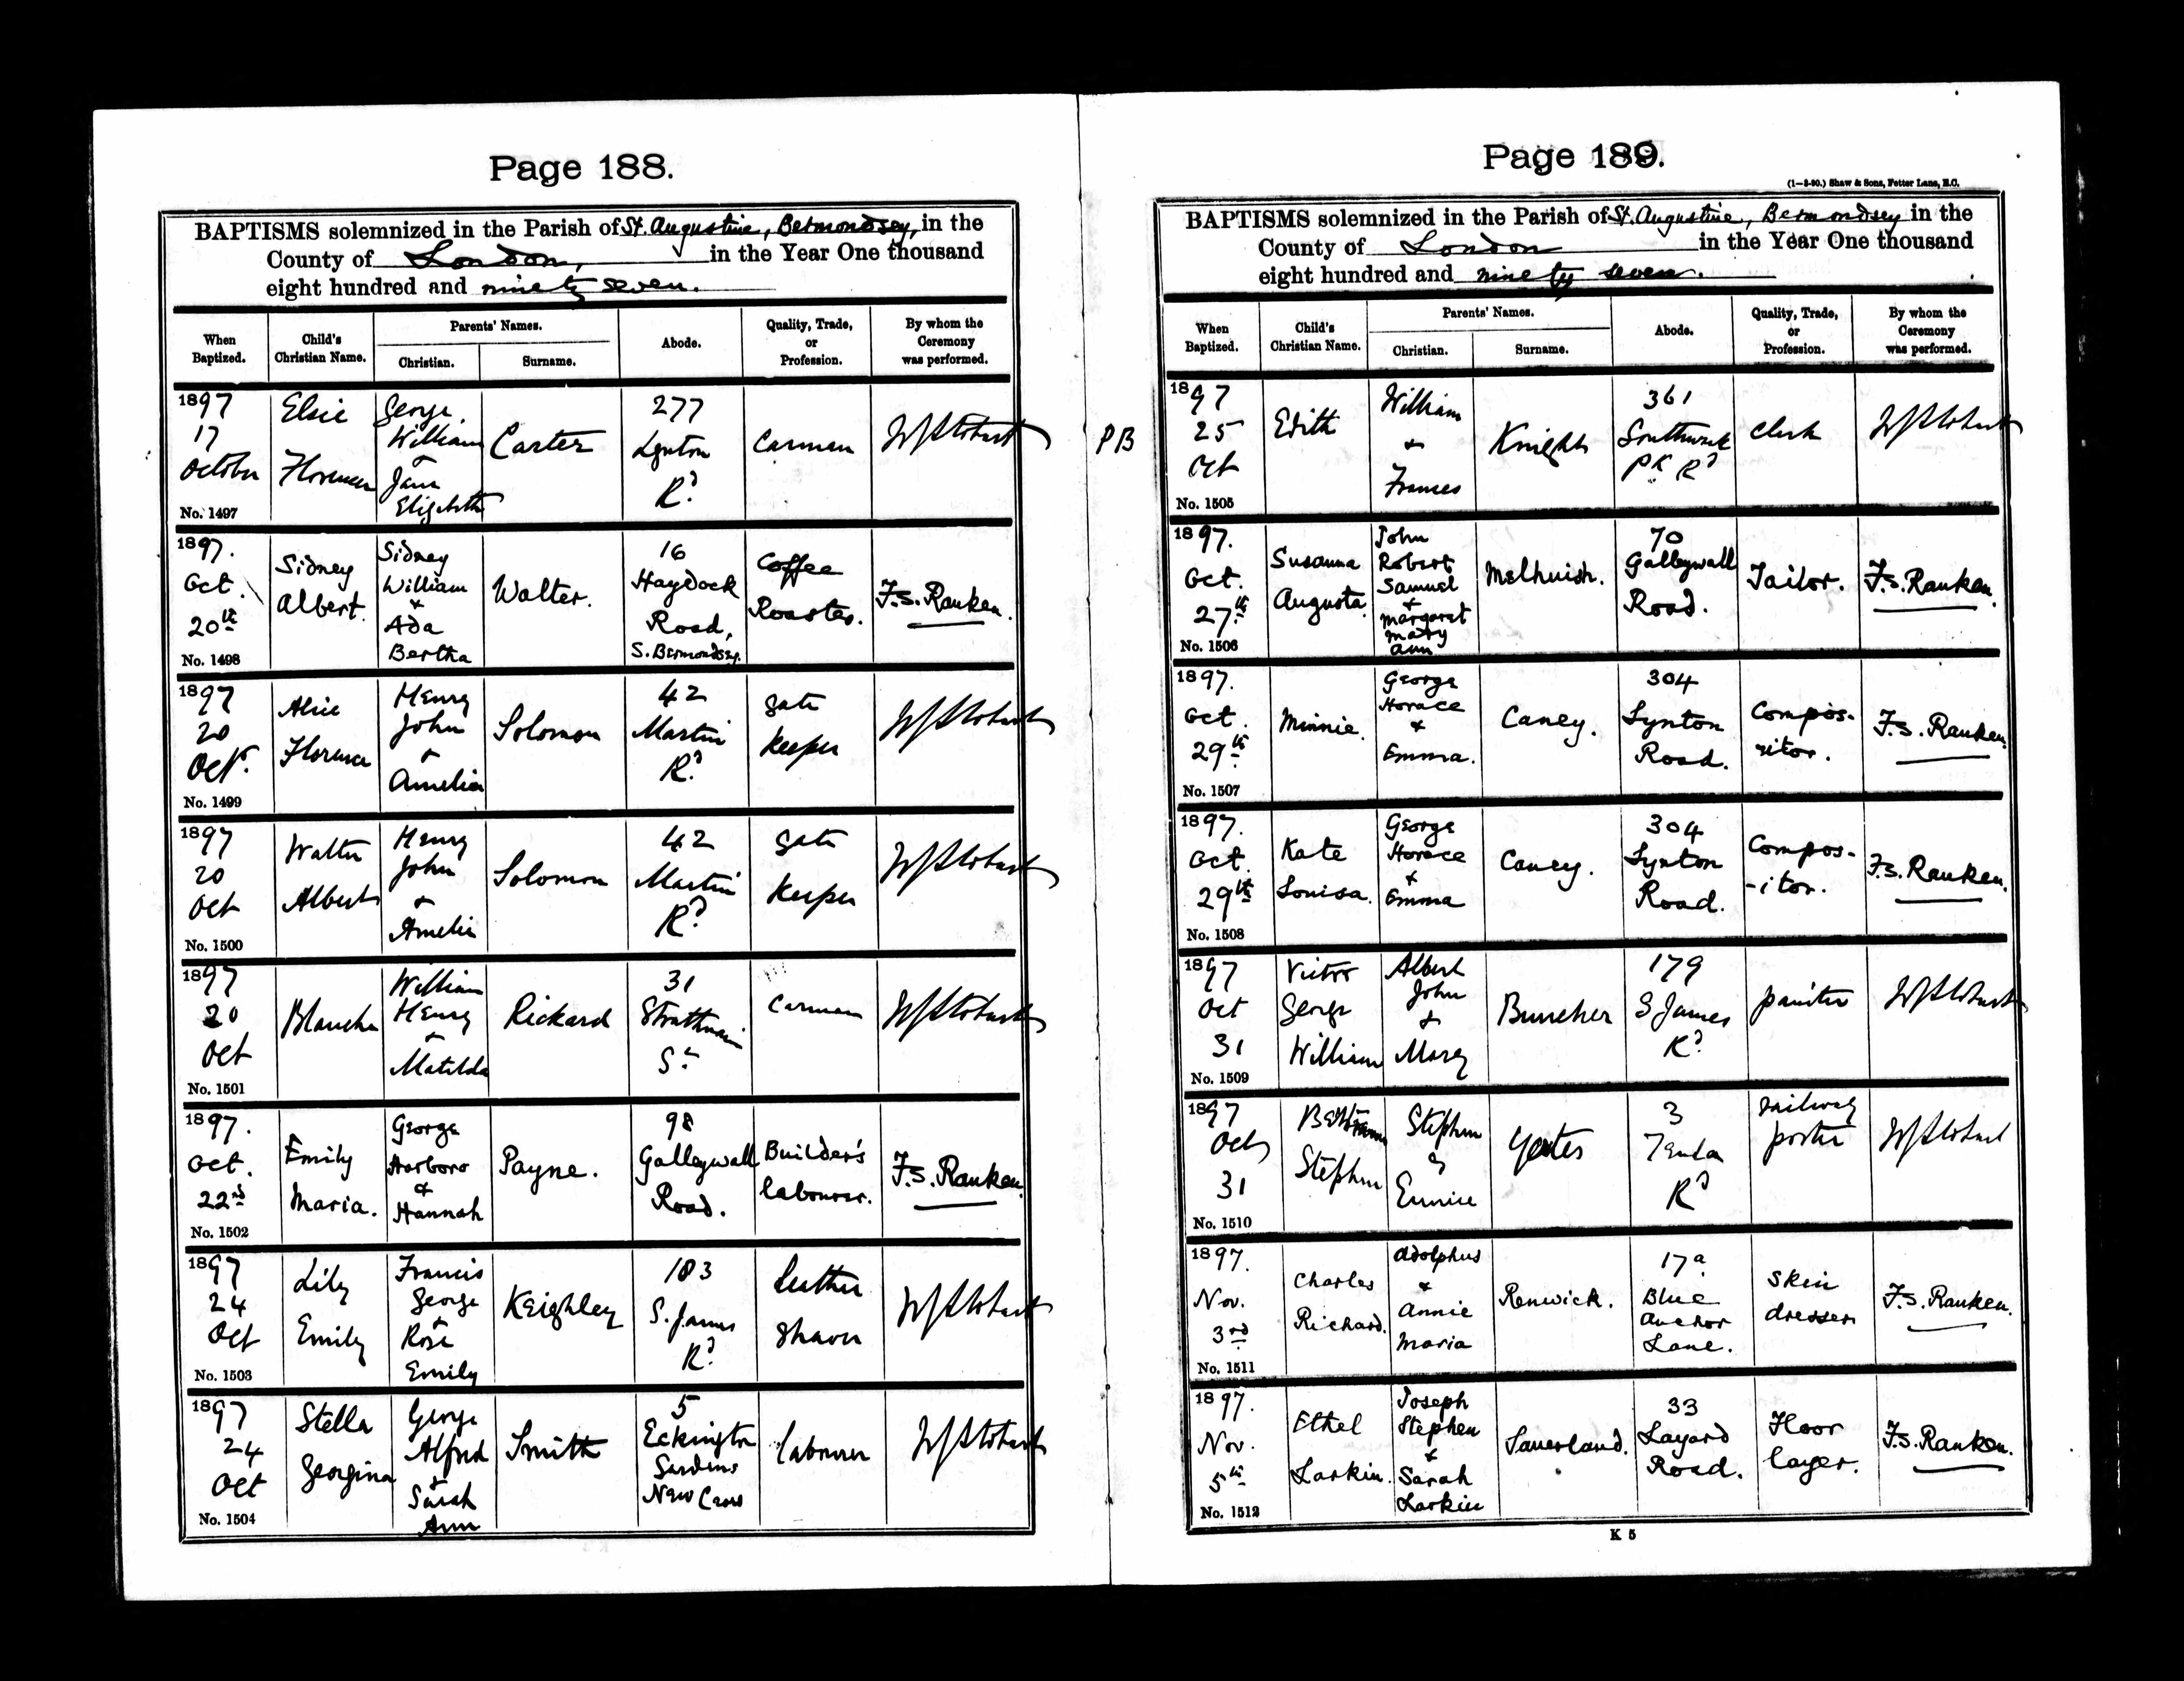 Page 188.
BAPTISMS solemnized in the Parish of St. Augustine, Bermondsey, in the
County of London, in the Year One thousand
eight hundred and ninety seven.
When Baptized. Child's Christian Name. Parents' Names. Abode. Quality, Trade, or Profession. By whom the Ceremony was performed.
Christian. Surname.
1897 17 October Elsie Florence George William & Jane Elizabeth Carter 277 Lynton Rd Carman
No. 1497
1897. Oct. 20th Sidney Albert. Sidney William & Ada Bertha Walter. 16 Haydock Road, S. Bermondsey. Coffee Roaster. F.S. Ranken.
No. 1498
1897 20 Oct. Alice Florence Henry John & Amelia Solomon 42 Martin Rd gate keeper
No. 1499
1897 20 Oct Walter Albert Henry John & Amelia Solomon 42 Martin Rd gate keeper
No. 1500
1897 20 Oct Blanche William Henry & Matilda Rickard 31 St. Carman
No. 1501
1897. Oct. 22nd Emily Maria. George Harboro & Hannah Payne. 98 Galleywall Road. Builder's labourer. F.S. Ranken.
No. 1502
1897 24 Oct Lily Emily Francis George & Rose Emily Keighley 183 S. James Rd leather shaver
No. 1503
1897 24 Oct Stella Georgina George Alfred & Sarah Ann Smith 5 Eckington Gardens New Cross labourer
No. 1504
Page 189.
(1—3-90.) Shaw & Sons, Fetter Lane, E.C.
BAPTISMS solemnized in the Parish of St. Augustine, Bermondsey in the
County of London in the Year One thousand
eight hundred and ninety seven.
When Baptized. Child's Christian Name. Parents' Names. Abode. Quality, Trade, or Profession. By whom the Ceremony was performed.
Christian. Surname.
PB 1897 25 Oct Edith William & Frances Knight 361 Southwark Pk Rd Clerk
No. 1505
1897. Oct. 27th Susanna Augusta John Robert Samuel & Margaret Mary Ann Melhuish. 70 Galleywall Road. Tailor. F.S. Ranken.
No. 1506
1897. Oct. 29th Minnie. George Horace & Emma. Caney. 304 Lynton Road. Compos- itor. F.S. Ranken.
No. 1507
1897. Oct. 29th Kate Louisa. George Horace & Emma Caney. 304 Lynton Road. Compos- -itor. F.S. Ranken.
No. 1508
1897 Oct 31 Victor George William Albert John & Mary Buncher 179 S James Rd painter
No. 1509
1897 Oct 31 Stephen Stephen & Eunice Yeates 3 Rd railway porter
No. 1510
1897. Nov. 3rd Charles Richard. Adolphus & Annie Maria Renwick. 17a Blue Anchor Lane. Skin dresser F.S. Ranken.
No. 1511
1897. Nov. 5th Ethel Larkin. Joseph Stephen & Sarah Larkin Sauerland. 33 Layard Road. Floor layer. F.S. Ranken.
No. 1512
K 5